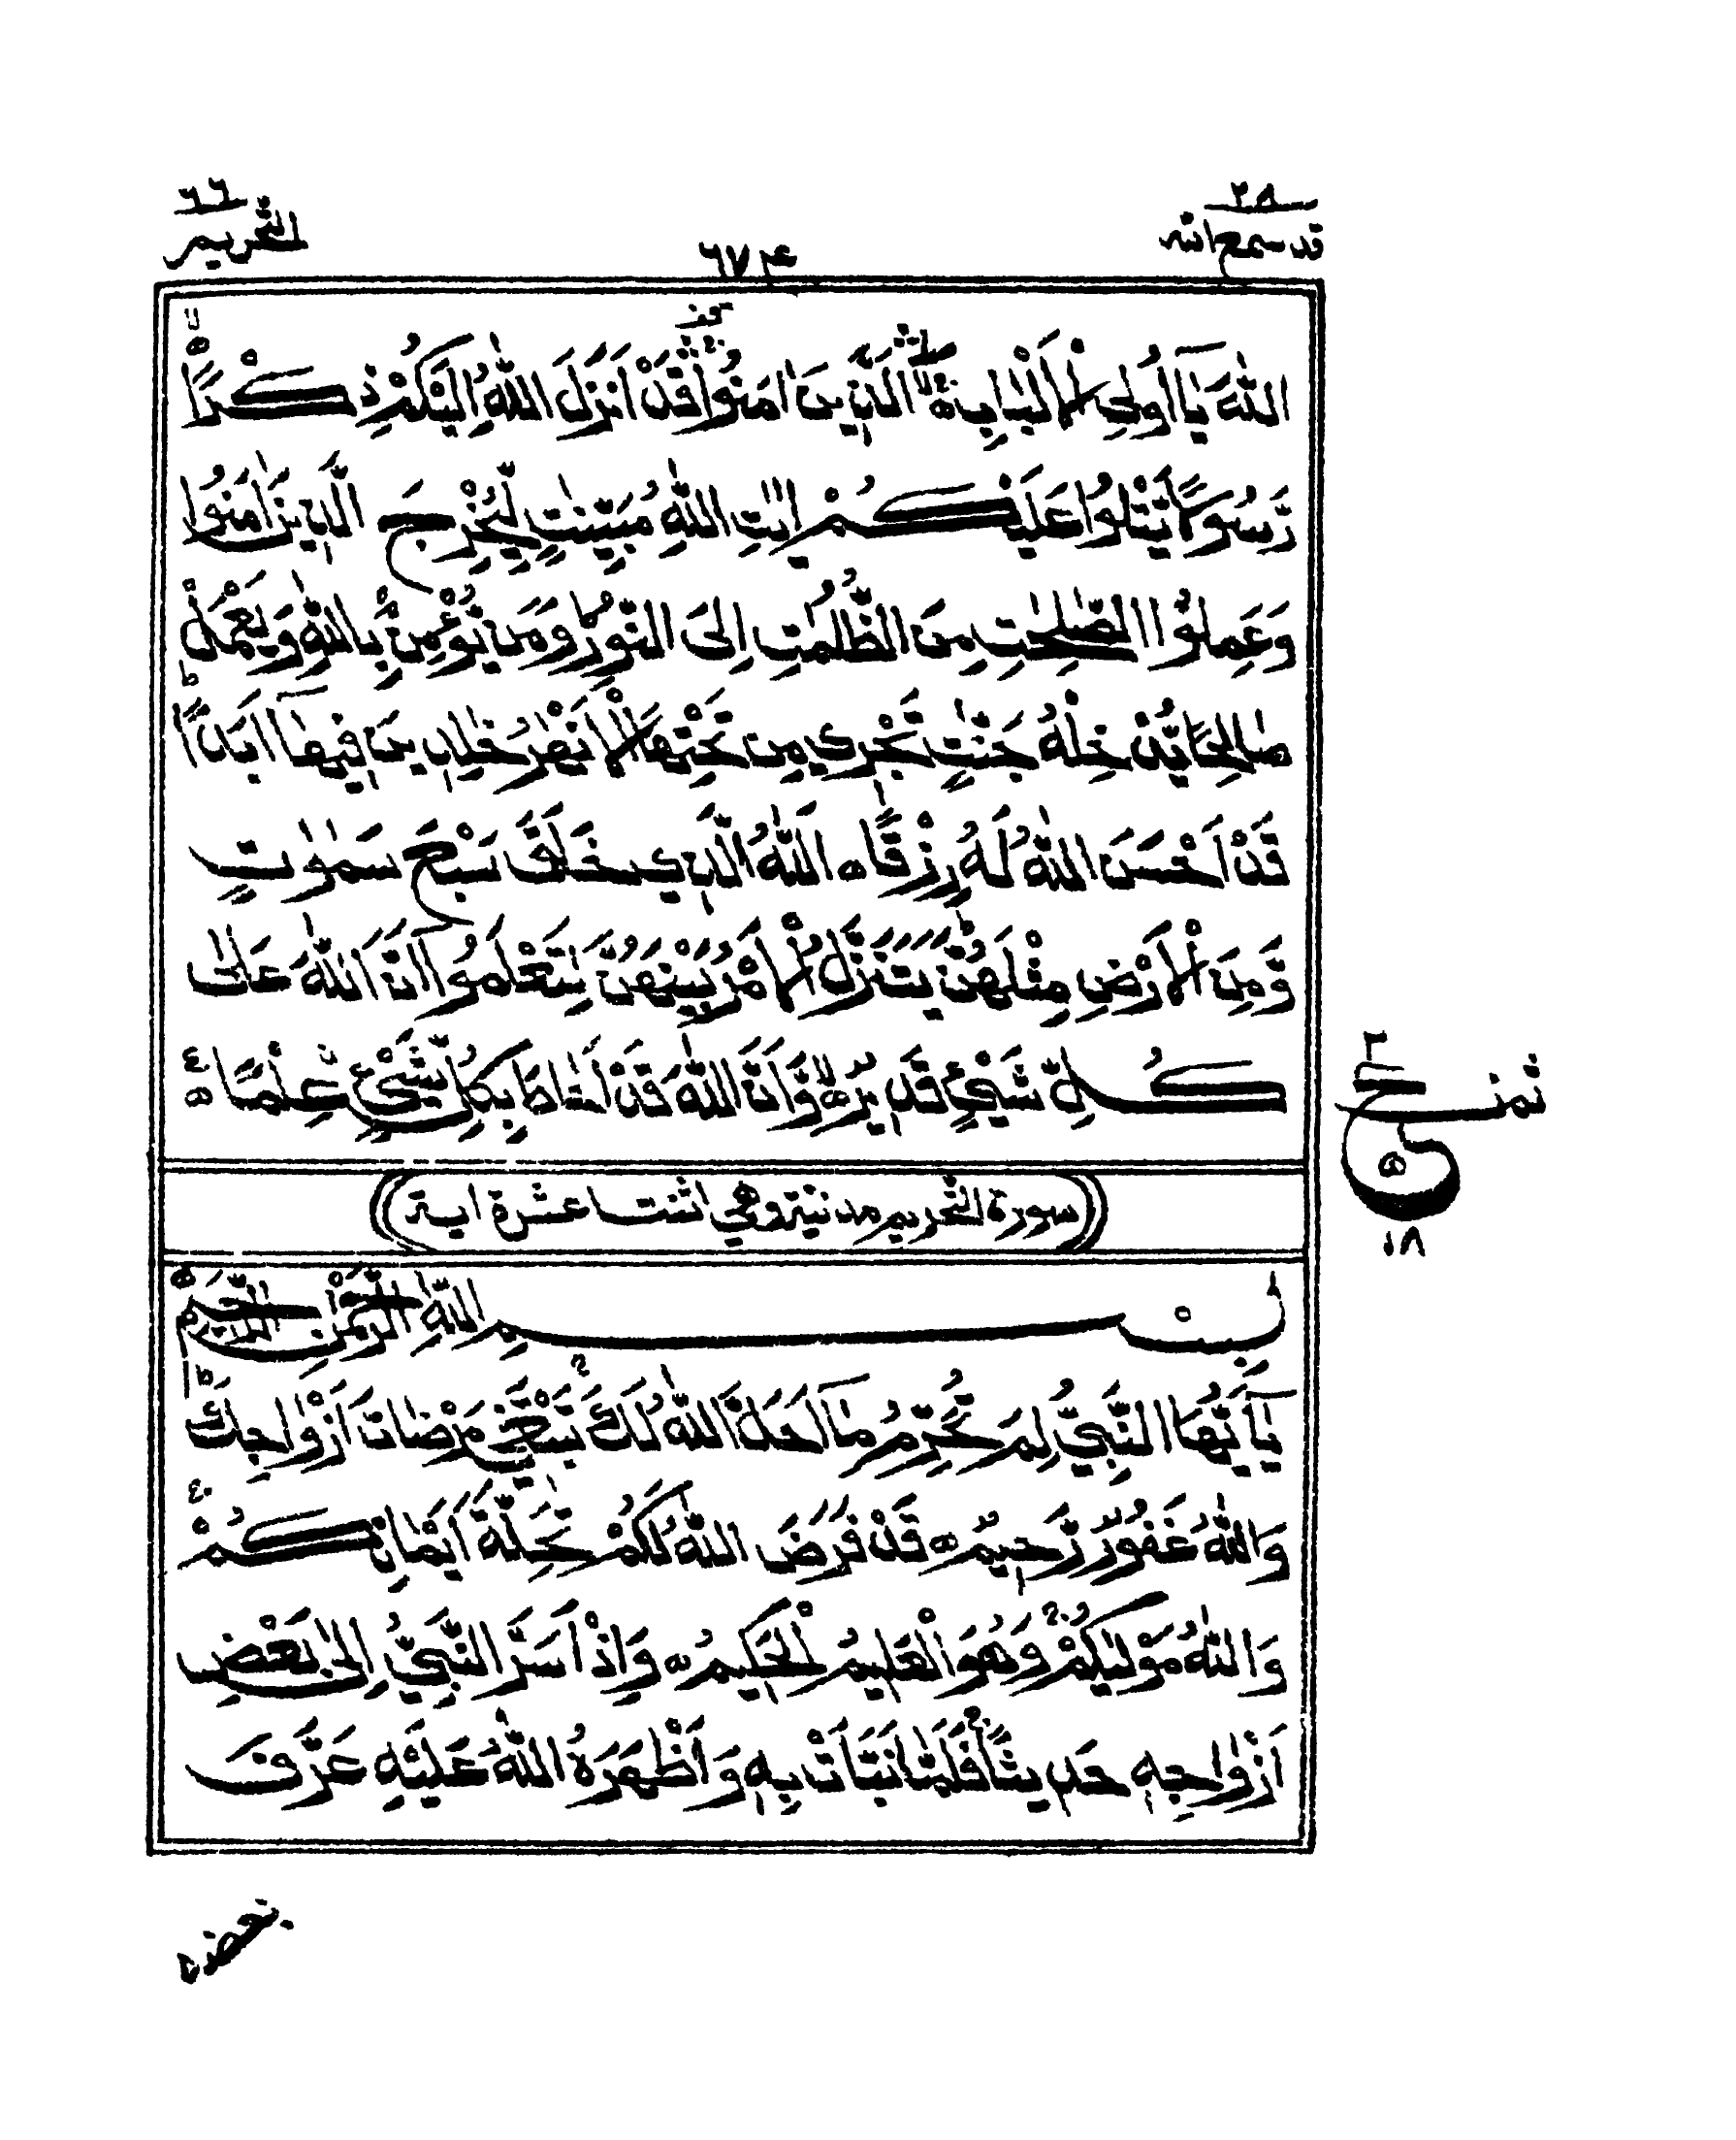 ٢٨
قد سمع الله
٦٧٤
٦٦
التحريم
اللّٰهَ يٰٓاُولِي الْاَلْبَابِ ۛ الَّذِيْنَ اٰمَنُوْا ۛ قَدْ اَنْزَلَ اللّٰهُ اِلَيْكُمْ ذِكْرًا
رَّسُوْلًا يَّتْلُوْا عَلَيْكُمْ اٰيٰتِ اللّٰهِ مُبَيِّنٰتٍ لِّيُخْرِجَ الَّذِيْنَ اٰمَنُوْا
وَعَمِلُوا الصّٰلِحٰتِ مِنَ الظُّلُمٰتِ اِلَى النُّوْرِ وَمَنْ يُّؤْمِنْۢ بِاللّٰهِ وَيَعْمَلْ
صَالِحًا يُّدْخِلْهُ جَنّٰتٍ تَجْرِيْ مِنْ تَحْتِهَا الْاَنْهٰرُ خٰلِدِيْنَ فِيْهَآ اَبَدًا
قَدْ اَحْسَنَ اللّٰهُ لَهٗ رِزْقًا ۝ اَللّٰهُ الَّذِيْ خَلَقَ سَبْعَ سَمٰوٰتٍ
وَّمِنَ الْاَرْضِ مِثْلَهُنَّ يَتَنَزَّلُ الْاَمْرُ بَيْنَهُنَّ لِتَعْلَمُوْا اَنَّ اللّٰهَ عَلٰى
كُلِّ شَيْءٍ قَدِيْرٌ ۝ وَّاَنَّ اللّٰهَ قَدْ اَحَاطَ بِكُلِّ شَيْءٍ عِلْمًا ۝
ثمن
٢
ع
٥
١٨
سورة التحريم مدنية وهي اثنتا عشرة اية
بِسْمِ اللّٰهِ الرَّحْمٰنِ الرَّحِيْمِ
يٰٓاَيُّهَا النَّبِيُّ لِمَ تُحَرِّمُ مَآ اَحَلَّ اللّٰهُ لَكَ تَبْتَغِيْ مَرْضَاتَ اَزْوَاجِكَ
وَاللّٰهُ غَفُوْرٌ رَّحِيْمٌ ۝ قَدْ فَرَضَ اللّٰهُ لَكُمْ تَحِلَّةَ اَيْمَانِكُمْ
وَاللّٰهُ مَوْلٰىكُمْ وَهُوَ الْعَلِيْمُ الْحَكِيْمُ ۝ وَاِذْ اَسَرَّ النَّبِيُّ اِلٰى بَعْضِ
اَزْوَاجِهٖ حَدِيْثًا فَلَمَّا نَبَّاَتْ بِهٖ وَاَظْهَرَهُ اللّٰهُ عَلَيْهِ عَرَّفَ
بعضه